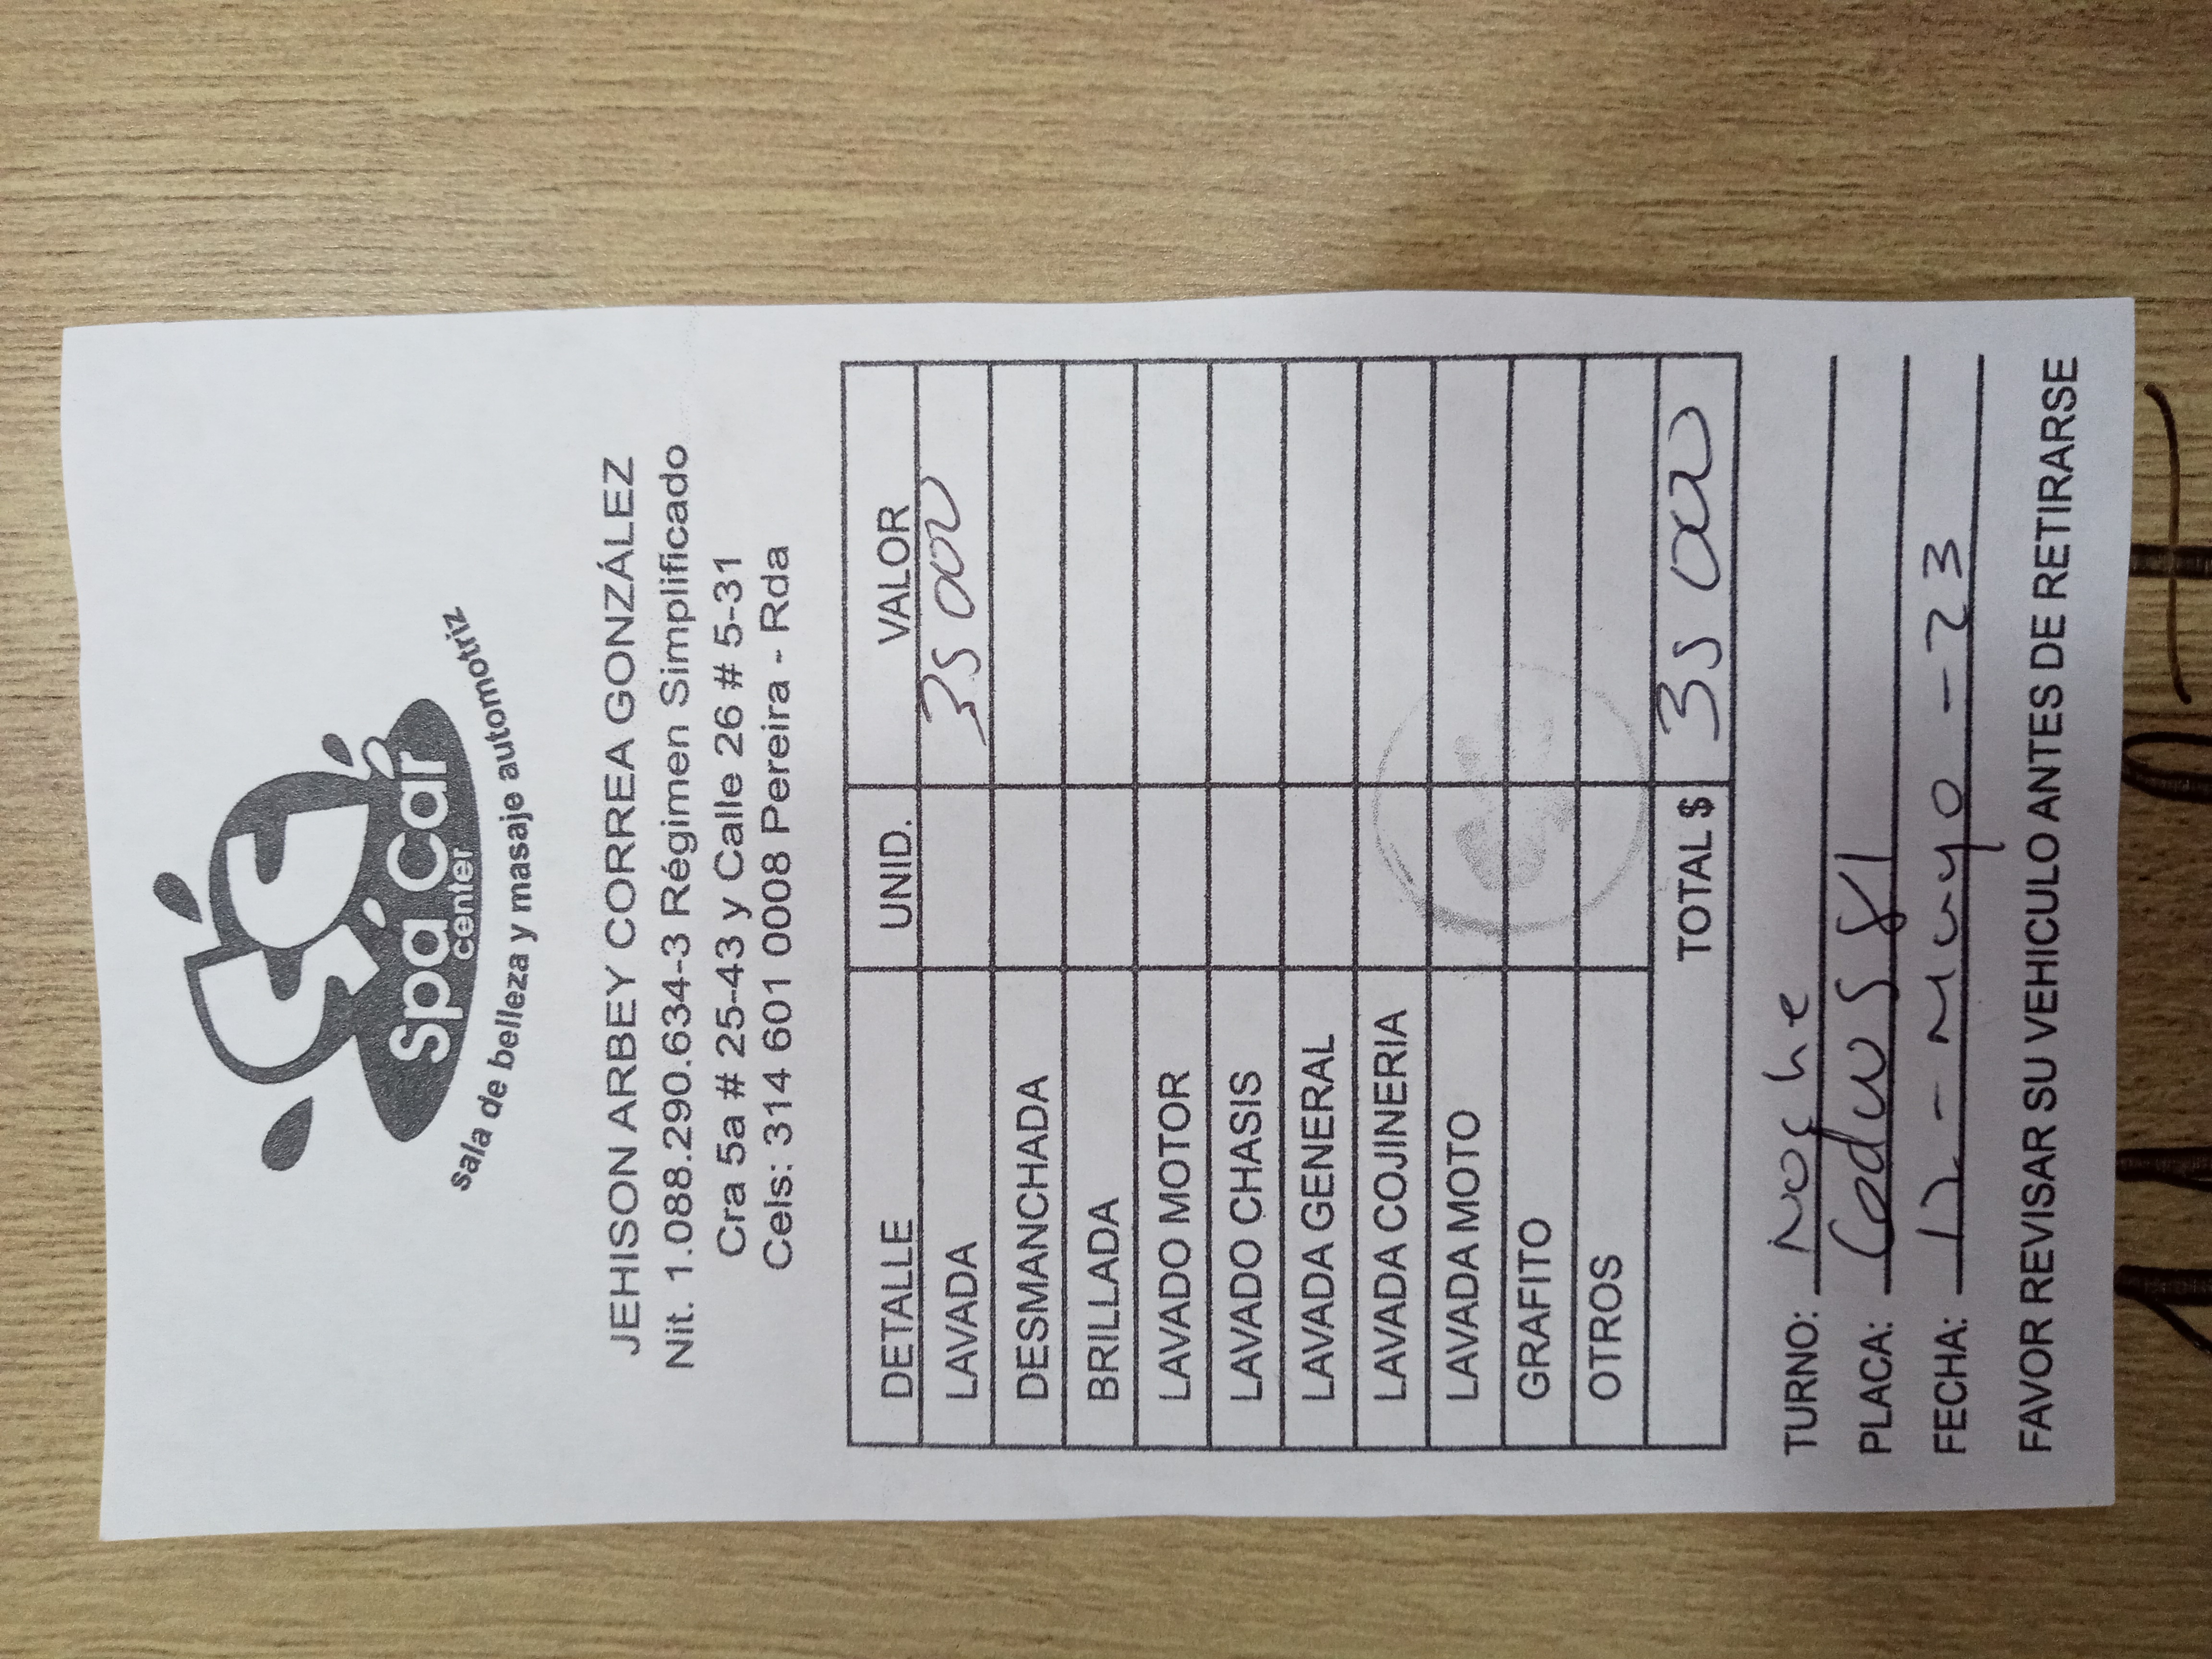 SC
Spa Car
center
sala de belleza y masaje automotriz
JEHISON ARBEY CORREA GONZÁLEZ
Nit. 1.088.290.634-3 Régimen Simplificado
Cra 5a # 25-43 y Calle 26 # 5-31
Cels: 314 601 0008 Pereira - Rda
DETALLE UNID. VALOR
LAVADA 35 000
DESMANCHADA
BRILLADA
LAVADO MOTOR
LAVADO CHASIS
LAVADA GENERAL
LAVADA COJINERIA
LAVADA MOTO
GRAFITO
OTROS
TOTAL $ 35 000
TURNO: Noche
PLACA:
FECHA: 12 - Mayo - 23
FAVOR REVISAR SU VEHICULO ANTES DE RETIRARSE